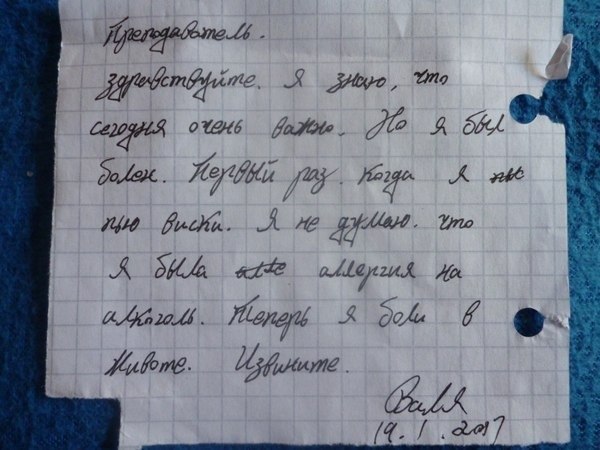 Преподаватель.
здравствуйте. Я знаю, что
сегодня очень важно. Но я был
болен. Первый раз. Когда я пью
пью виски. Я не думаю. что
я была але аллергия на
алкоголь. Теперь я боли в
животе. Извините.
Валя
19.1.2017